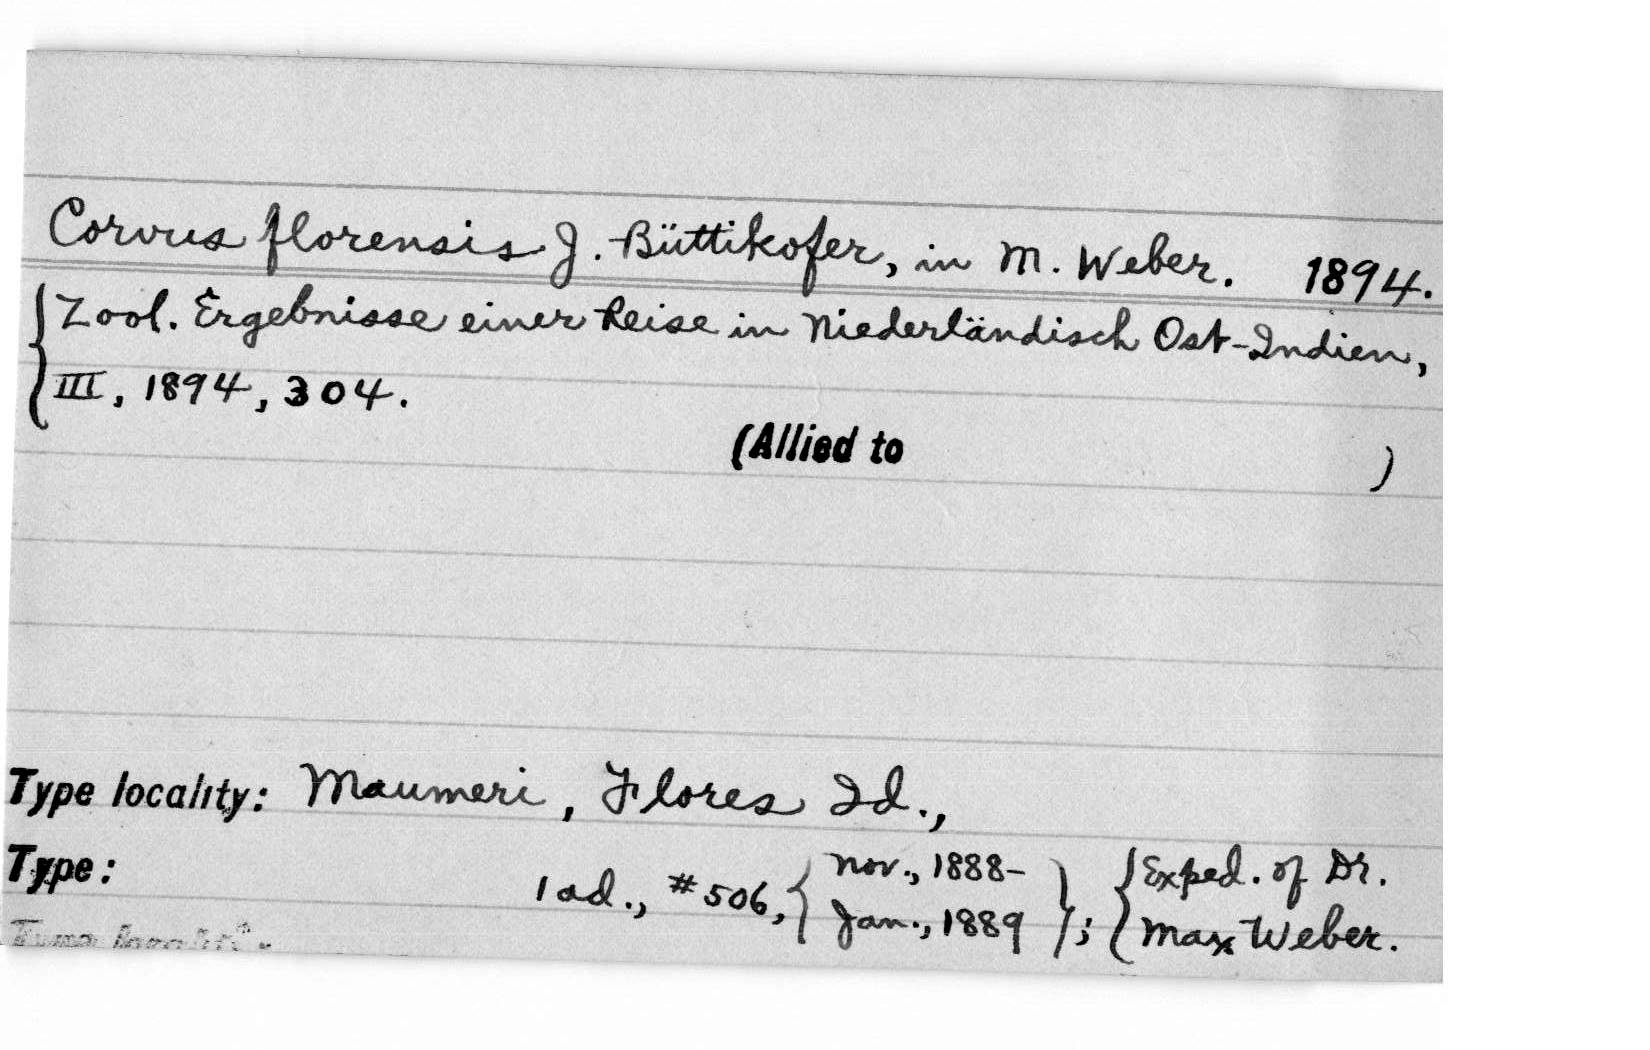 Corvus florensis J. Büttikofer, in M. Weber. 1894.
Zool. Ergebnisse einer Reise in Niederländisch Ost-Indien,
III, 1894, 304.
(Allied to )
Type locality: Maumeri, Flores Id.,
Type: 1 ad., #506, { Nov., 1888-
Jan., 1889 }; { Exped. of Dr.
Max Weber.
Type locality: